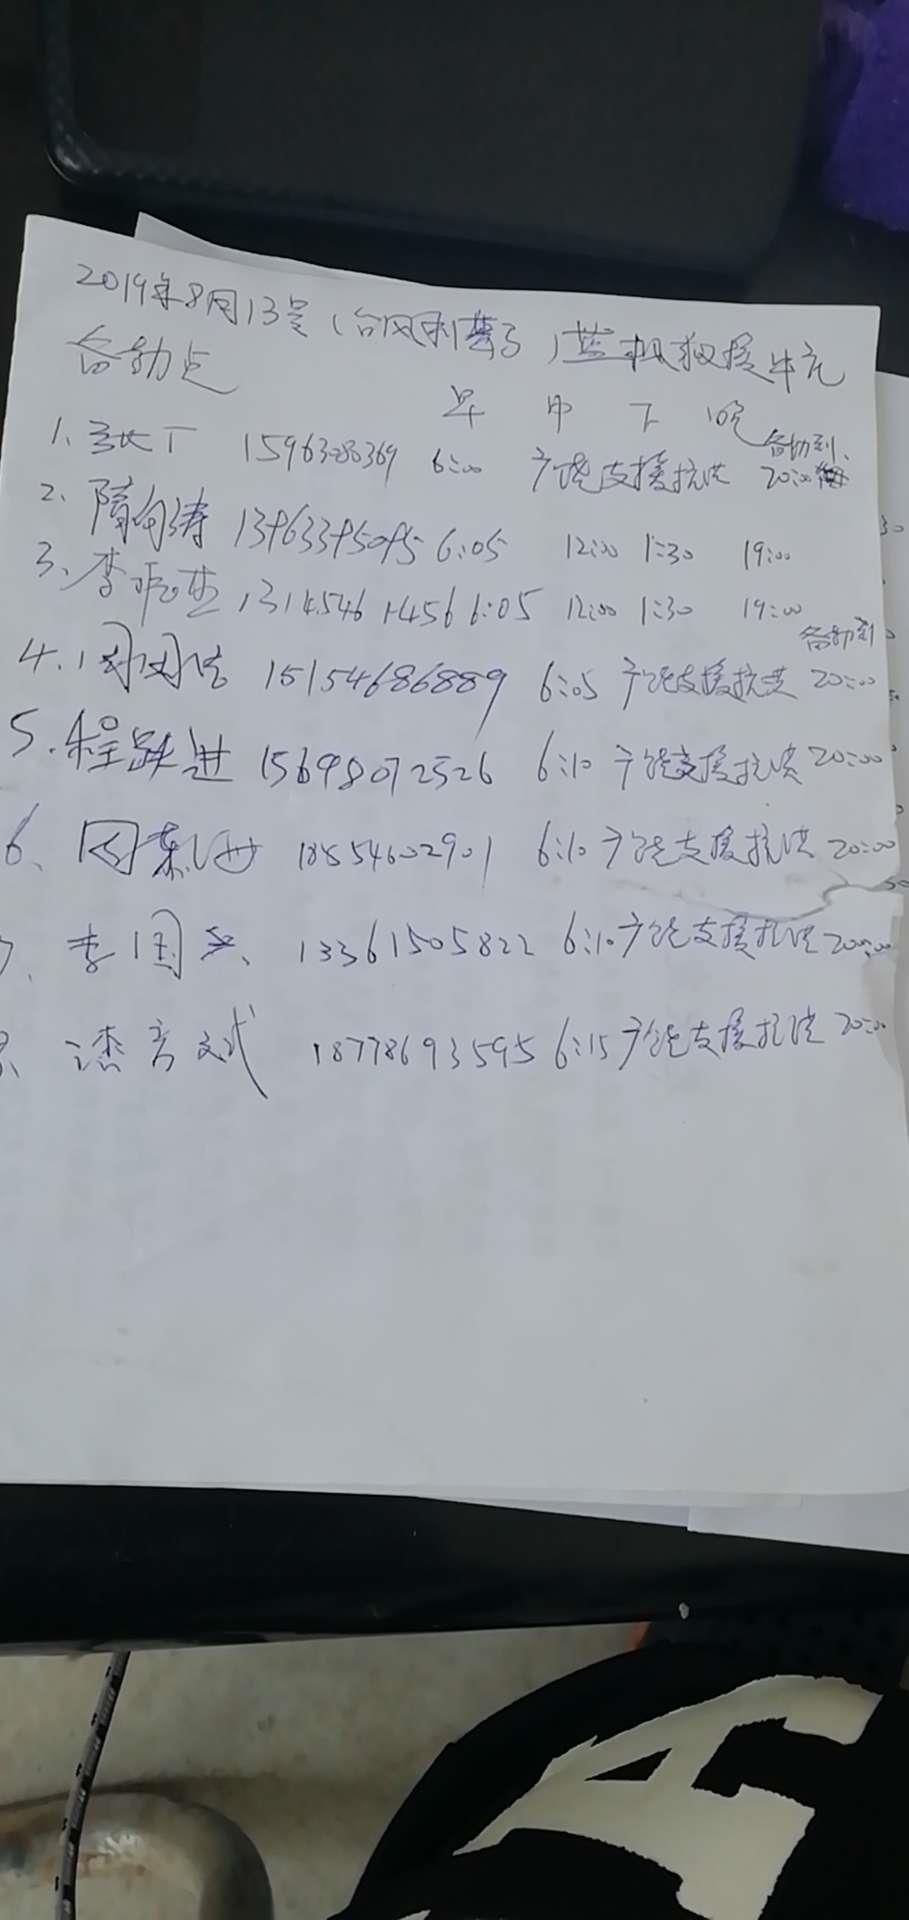 2019年8月13号(台风利奇马)蓝机救援中心
备勤点
早 中 下 晚
1、 15963280369 6:00 广饶支援抗洪 备勤到 20:00
2、隋向涛 13963395095 6:05 12:00 1:30 19:00
3、李 13145461456 6:05 12:00 1:30 19:00
4、周 15154686889 6:05 广饶支援抗洪 备勤到 20:00
5、程跃进 15698072526 6:10 广饶支援抗洪 20:00
6、 18554602901 6:10 广饶支援抗洪 20:00
7、李国 13361505822 6:10 广饶支援抗洪 20:00
8、 18778693595 6:15 广饶支援抗洪 20:00